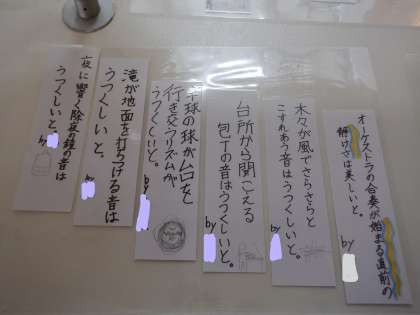 オーケストラの合奏が始まる直前の
静けさは美しいと。
by
木々が風でさらさらと
こすれあう音はうつくしいと。
by
台所から聞こえる
包丁の音はうつくしいと。
by
卓球の球がムロをと
行き交うリズムが
うつくしいと。
by
滝が地面を打ちつける音は
うつくしいと。
by
夜に響く除夜の鐘の音は
うつくしいと。
by